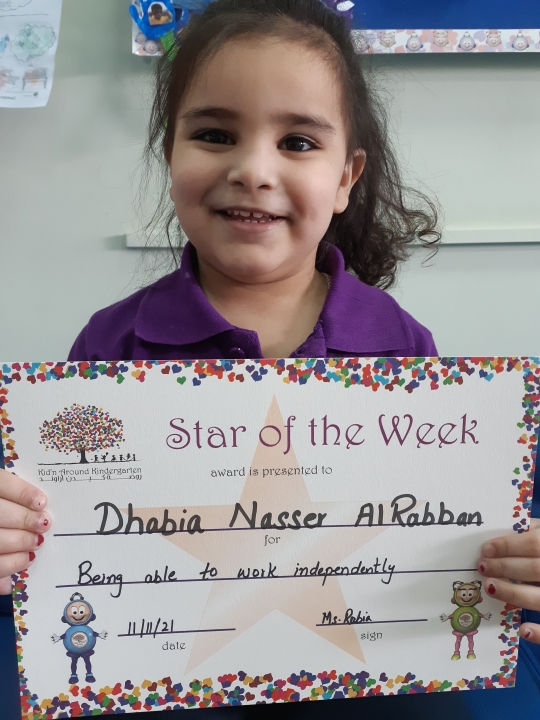 Kid'n Around Kindergarten
Star of the Week
award is presented to
Dhabia Nasser AlRabban
for
Being able to work independently
11/11/21
Ms. Rabia
date
sign